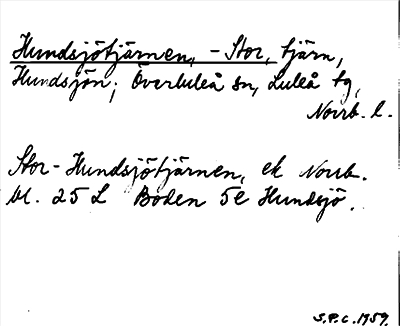 Hundsjötjärnen, - Stor, tjärn,
Hundsjön; Överluleå sn, Luleå tg,
Norrb. l.
Stor-Hundsjötjärnen, ek Norrb.
bl. 25 L Boden 5e Hundsjö.
S.P.C. 1959.